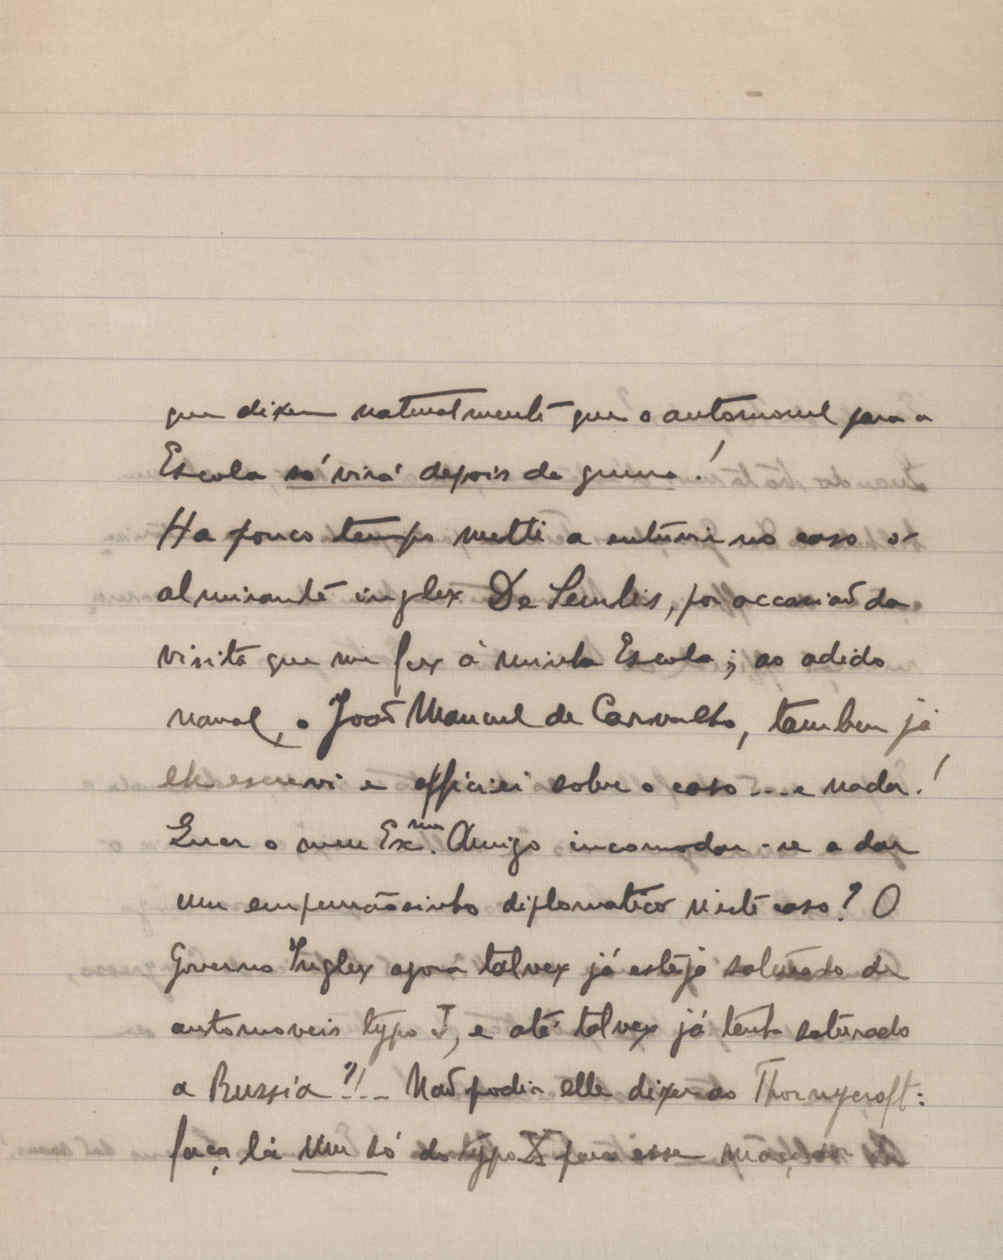 que dizem naturalmente que o automovel para a
Escola só virá depois da guerra!
Ha pouco tempo metti a intervir no caso o
almirante inglez De , por occasião da
visita que me fez á minha Escola; ao adido
naval, o João Manuel de Carvalho, tambem já
lhe escrevi e officiei sobre o caso ... e nada!
Quer o meu Exmo. Amigo incomodar-se a dar
um empurrãosinho diplomatico n'este caso? O
Governo Inglez agora talvez já esteja saturado de
automoveis typo J, e até talvez já tenha saturado
a Russia?!... Não podia elle dizer ao Thornycroft:
faça lá um só do typo X para esse